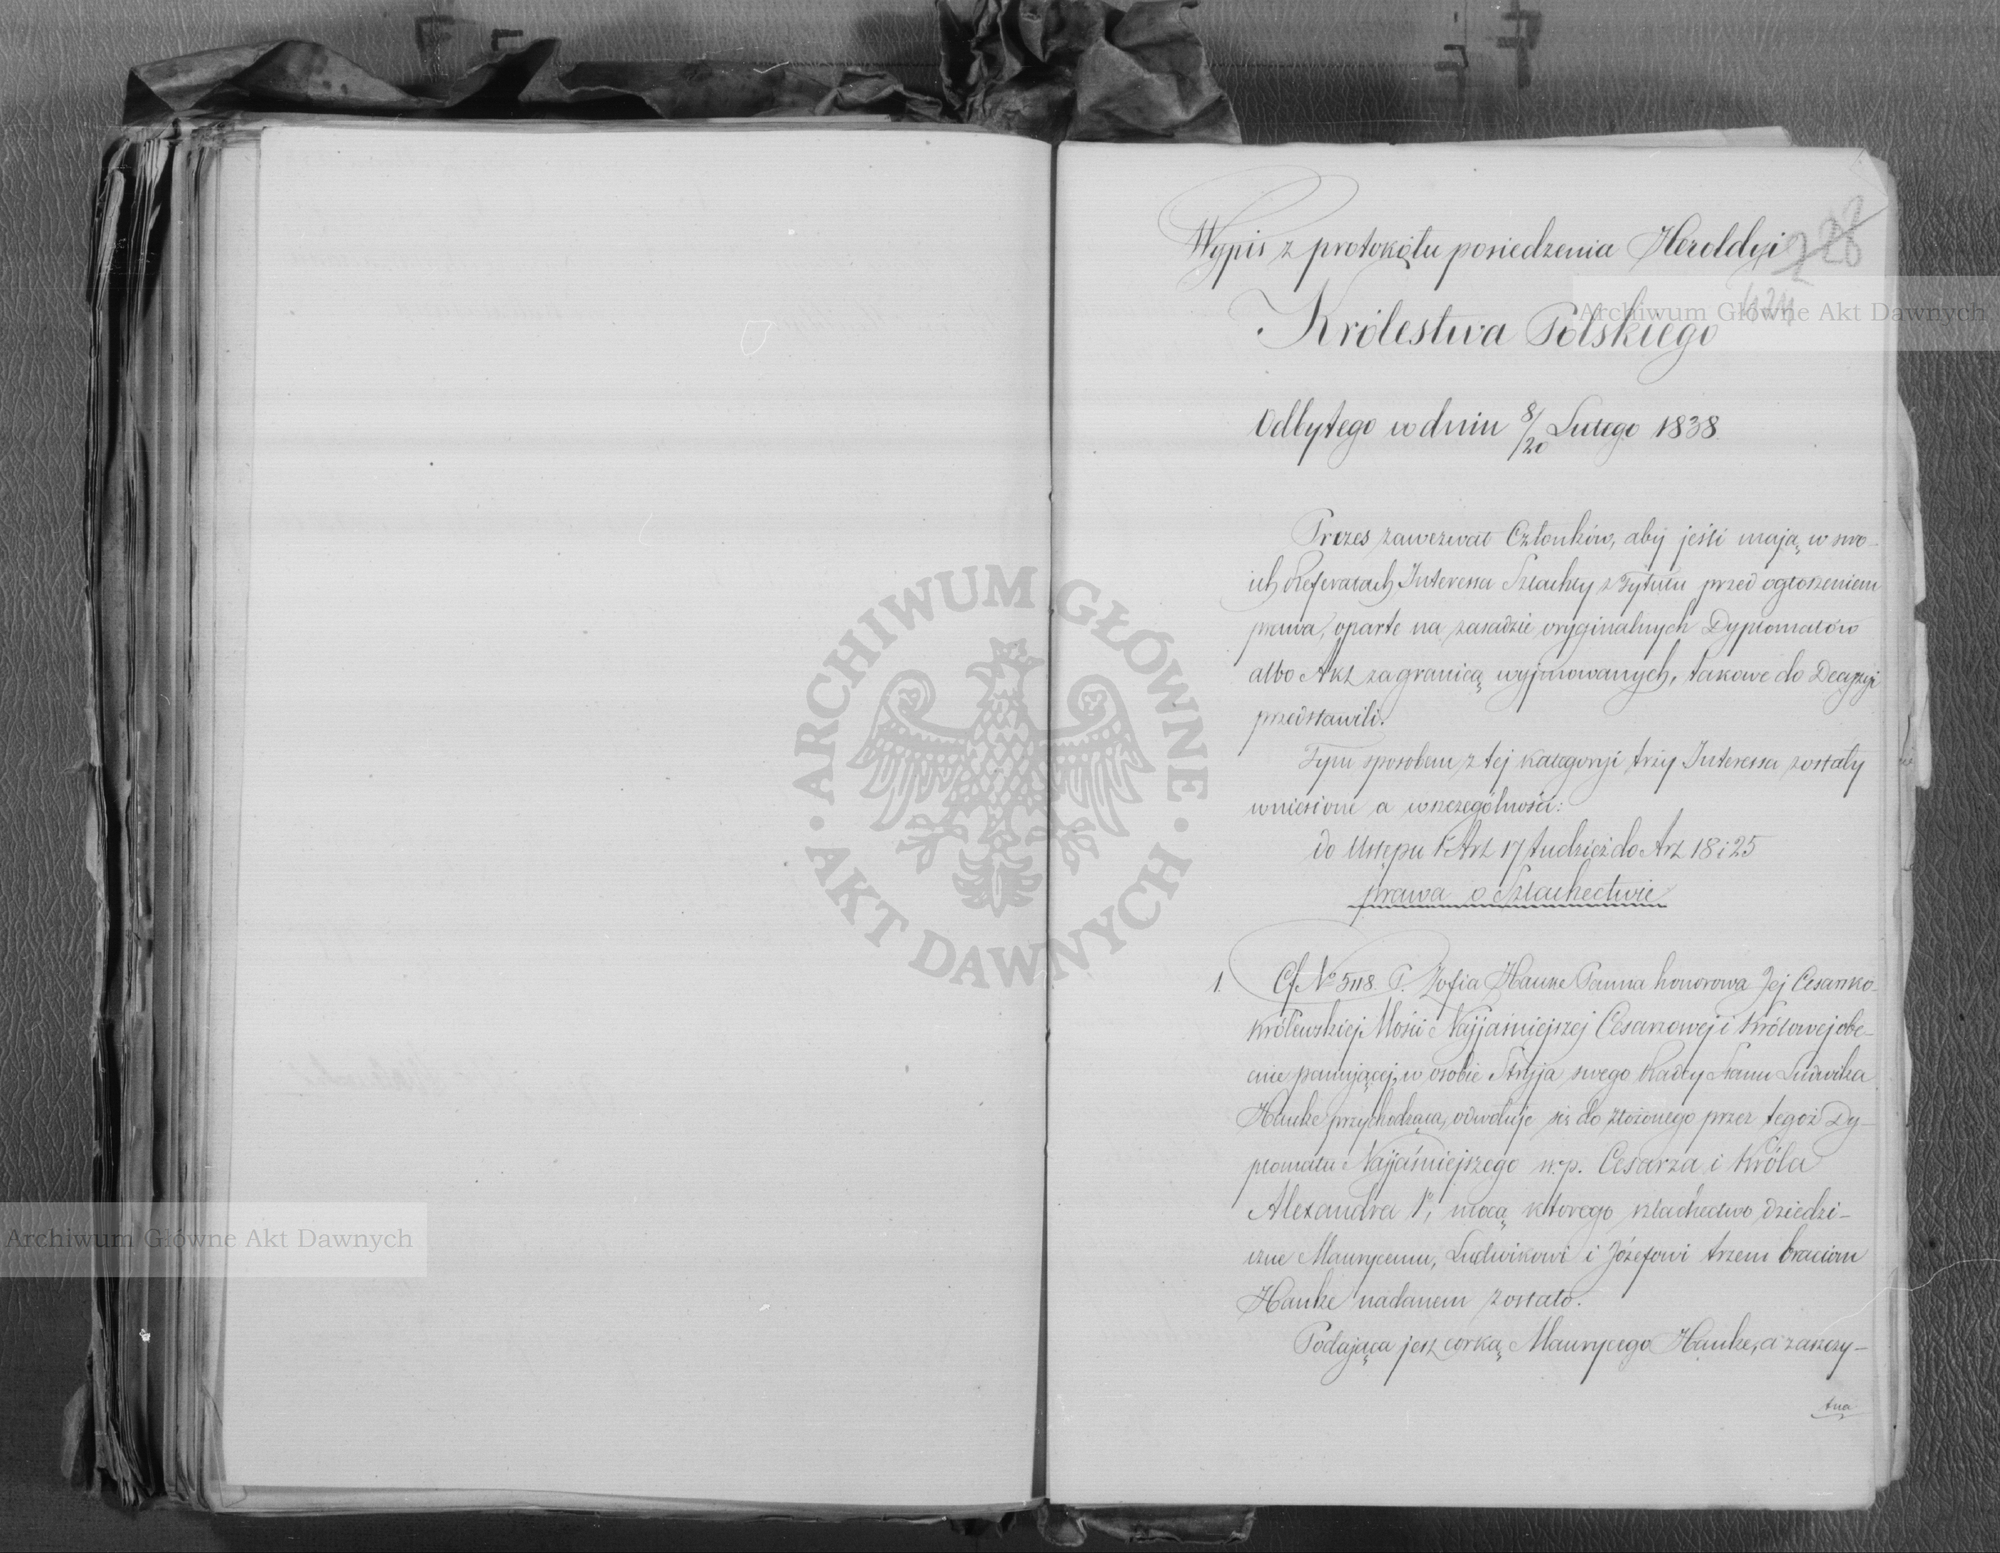 Wypis z protokołu posiedzenia Heroldyi
228
Królestwa Polskiego
Odbytego w dniu 8/20 Lutego 1838.
Prezes zawezwał Członków, aby jeśli mają w swo-
ich Referatach Interessa Szlachty z Tytułu przed ogłoszeniem
prawa, oparte na zasadzie oryginalnych Dyplomatów
albo Akt zagranicą wyjmowanych, takowe do Decyzyi
przedstawili.
Tym sposobem z tej kategoryi trzy Interessa zostały
wniesione a wszczególności:
do Ustępu 1 Art 17 tudzież do Art 18 i 25
prawa o Szlachectwie
1. Cf No 5118. P. Zofia Hauke Panna honorowa Jej Cesarsko-
Królewskiej Mości Najjaśniejszej Cesarzowej i Królowej obe-
cnie panującej, w osobie Stryja swego Radcy Stanu Ludwika
Hauke przychodząca, odwołuje się do złożonego przez tegoż Dy-
plomatu Najjaśniejszego n. p. Cesarza i Króla
Alexandra 1o, mocą ktorego szlachectwo dziedzi-
czne Maurycemu, Ludwikowi i Józefowi trzem braciom
Hauke nadanem zostało.
Podająca jest corką Maurycego Hauke, a zaszczy-
tna
Archiwum Główne Akt Dawnych
ARCHIWUM GŁÓWNE
AKT DAWNYCH
Archiwum Główne Akt Dawnych